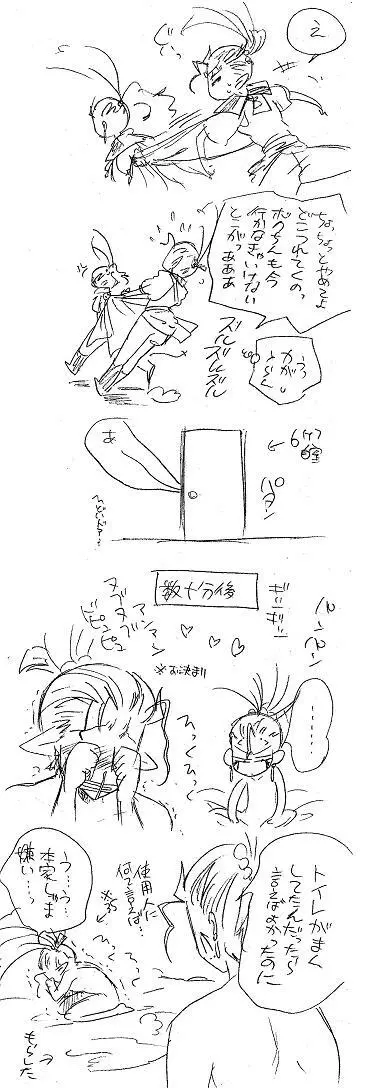 え
ちょっちょっとやめてよ
どこつれてくの、
ボクちんも今
行かなきゃいけない
とこがっあああ
ズルズルズル
あ
バタン
数十分後
ギシギシ
パンパン
アンアン
ヌプヌプ
ピュピュ
※お決まり
ひっくひっく
………
トイレがまん
してたんだったら
言えばよかったのに
使用人に
何て言えば…
う…っ…
本家じゃま
嫌い…っ
もらした